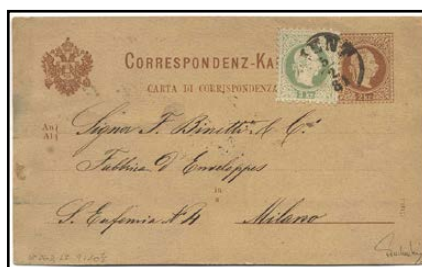 CORRESPONDENZ-KA
CARTA DI CORRISPONDENZA
An
Al
Signor F. Binetti & C.
Fabbrica d'Enveloppes
in
a
S. Eufemia N 4 Milano